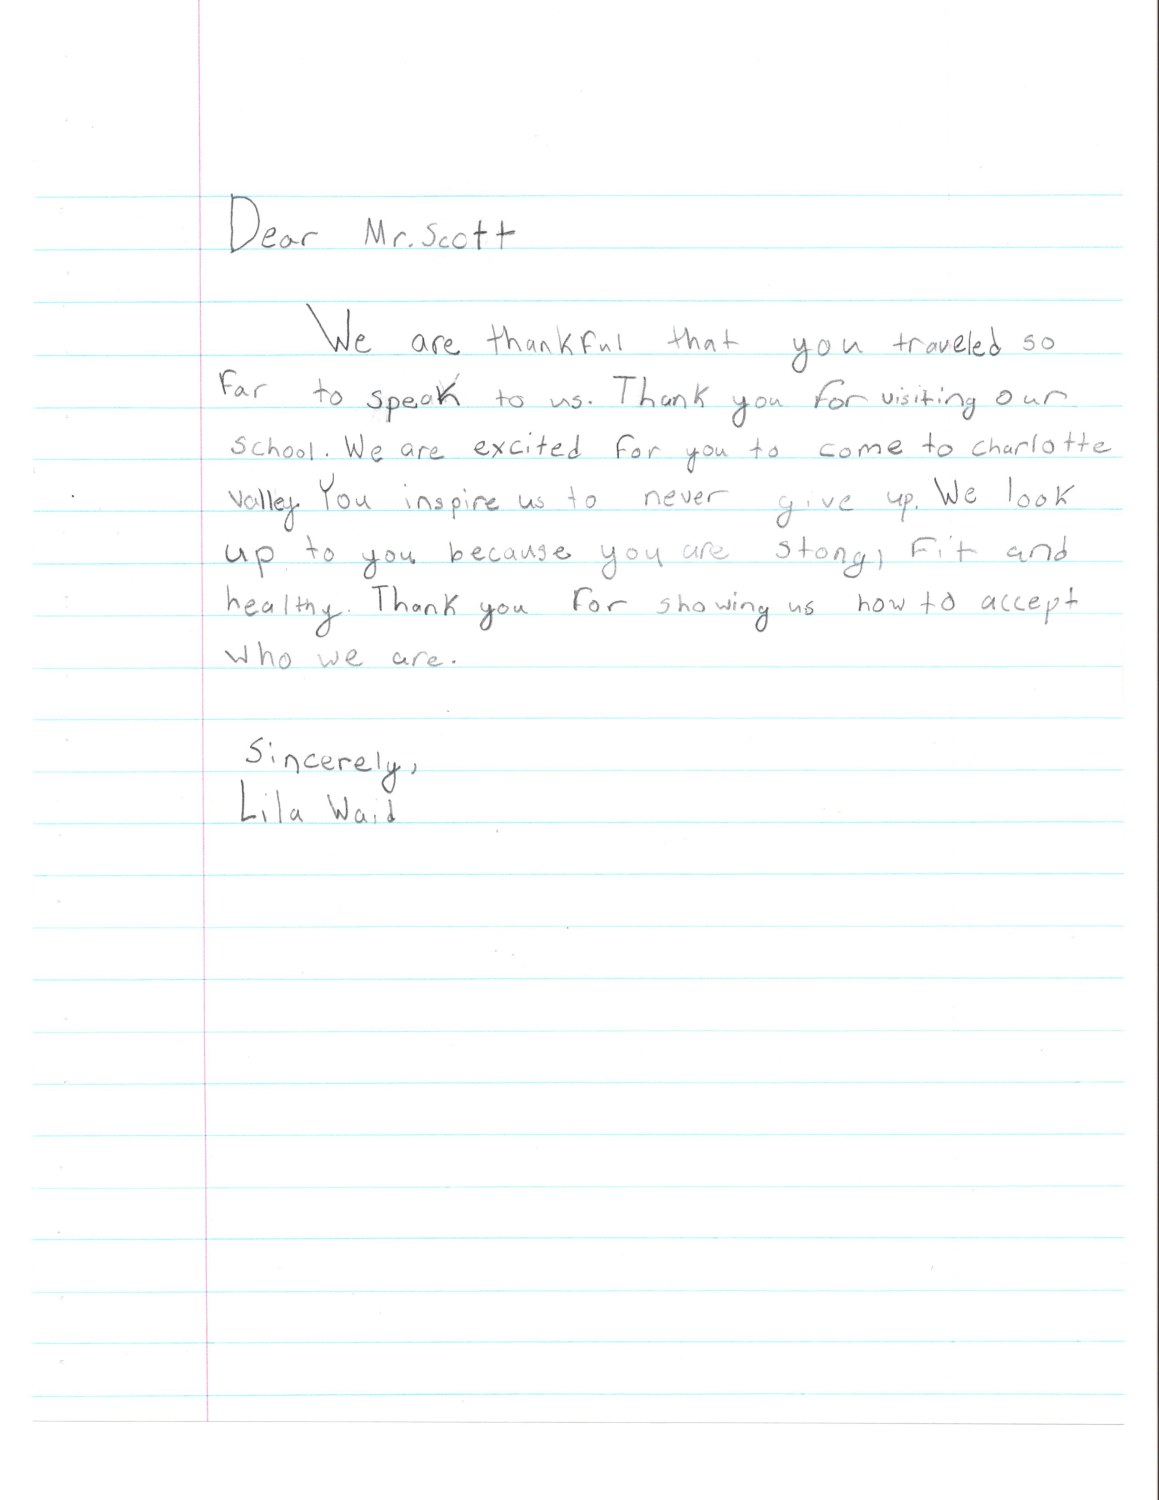 Dear Mr. Scott
We are thankful that you traveled so
far to speak to us. Thank you for visiting our
school. We are excited for you to come to charlotte
valley. You inspire us to never give up. We look
up to you because you are stong, fit and
healthy. Thank you for showing us how to accept
who we are.
Sincerely,
Lila Waid